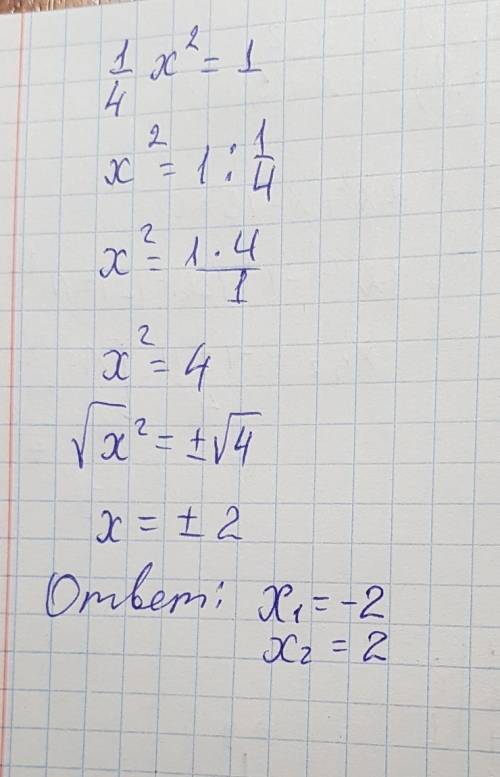 1/4 x² = 1
x² = 1 : 1/4
x² = 1 · 4/1
x² = 4
√x² = ±√4
x = ± 2
Ответ: x₁ = -2
x₂ = 2